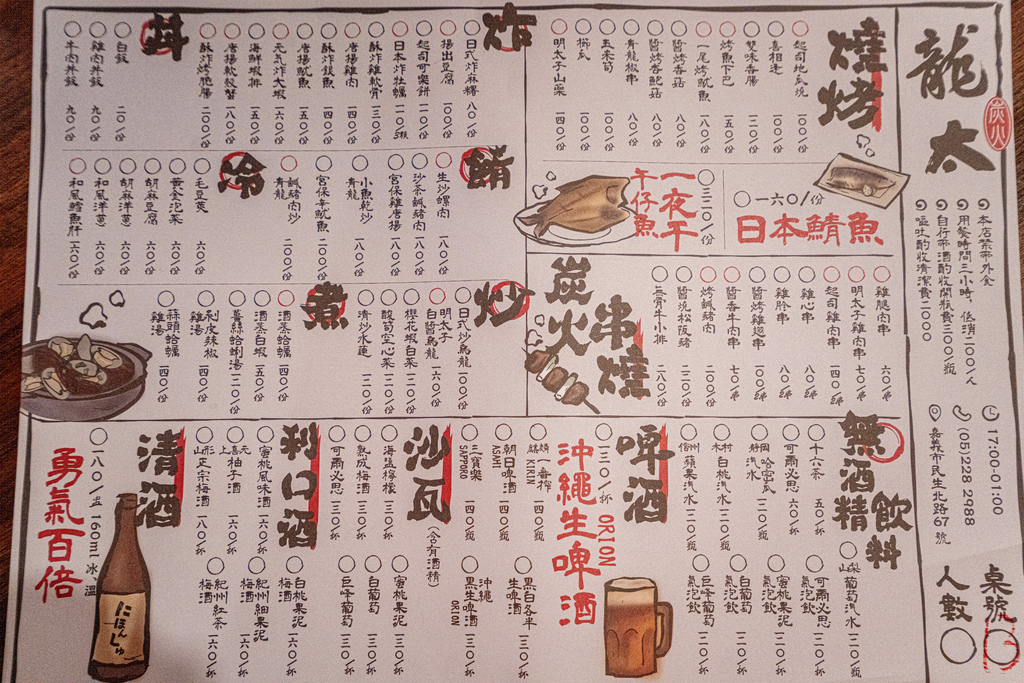 龍太
炭火
本店禁帶外食
用餐時間三小時，低消二〇〇/人
自行帶酒酌收開瓶費三〇〇/瓶
嘔吐酌收清潔費二〇〇〇
17:00-01:00
(05)228 2988
嘉義市民生北路67號
桌號
人數
燒烤
起司地瓜燒 一〇〇/份
喜相逢 一〇〇/份
雙味香腸 一二〇/份
烤魚下巴 一五〇/份
一尾烤魷魚 一八〇/份
醬烤香菇 八〇/份
醬烤杏鮑菇 八〇/份
青龍椒串 八〇/份
玉米筍 一〇〇/份
櫛瓜 一〇〇/份
明太子山藥 一四〇/份
一六〇/份
日本鯖魚
一夜干
午仔魚
三二〇/份
炭火串燒
雞腿肉串 六〇/串
明太子雞肉串 七〇/串
起司雞肉串 一四〇/串
雞心串 八〇/串
雞胗串 八〇/串
醬烤雞翅串 一〇〇/串
醬香牛肉串 七〇/串
烤鹹豬肉 二〇〇/份
醬燒松阪豬 二二〇/份
無骨牛小排 二八〇/份
炸
日式炸麻糬 八〇/份
揚出豆腐 一〇〇/份
起司可樂餅 一二〇/份
日本炸牡蠣 一一〇/2顆
酥炸雞軟骨 一三〇/份
唐揚雞肉 一四〇/份
酥炸銀魚 一四〇/份
唐揚魷魚 一五〇/份
元氣炸大蝦 一六〇/份
海鮮蝦排 一五〇/份
唐揚軟殼蟹 一八〇/份
酥炸烤脆腸 二〇〇/份
丼
白飯 二〇/份
雞肉丼飯 九〇/份
牛肉丼飯 九〇/份
鯖
生炒螺肉 一八〇/份
沙茶鹹豬肉 一八〇/份
宮保雞唐揚 一八〇/份
小魚乾炒青龍 一八〇/份
宮保辛魷魚 二〇〇/份
鹹豬肉炒青龍 二〇〇/份
冷
毛豆莢 六〇/份
黃金泡菜 六〇/份
胡麻豆腐 六〇/份
胡麻洋蔥 六〇/份
和風洋蔥 六〇/份
和風鱈魚肝 一六〇/份
炒
日式炒烏龍 一〇〇/份
明太子白醬烏龍 一六〇/份
櫻花蝦白菜 一二〇/份
酸筍空心菜 一二〇/份
清炒水蓮 一二〇/份
煮
酒蒸蛤蠣 一四〇/份
酒蒸白蝦 一五〇/份
薑絲蛤蜊湯 一二〇/份
剝皮辣椒雞湯 一四〇/份
蒜頭蛤蠣雞湯 一六〇/份
無酒精飲料
十六茶 五〇/杯
可爾必思 六〇/杯
靜岡哈密瓜汽水 一二〇/瓶
木村白桃汽水 一二〇/瓶
信州蘋果汽水 一二〇/瓶
山梨葡萄汽水 一二〇/瓶
可爾必思氣泡飲 一二〇/杯
蜜桃果泥氣泡飲 一二〇/杯
白葡萄氣泡飲 一二〇/杯
巨峰葡萄氣泡飲 一二〇/杯
啤酒
一三〇/杯
ORION
沖繩生啤酒
麒麟一番搾 KIRIN 一四〇/瓶
朝日啤酒 ASAHI 一二〇/瓶
三寶樂 SAPPORO 一四〇/瓶
黑白各半生啤酒 一三〇/杯
沖繩黑生啤酒 ORION 一三〇/杯
沙瓦
(含有酒精)
海鹽檸檬 一三〇/杯
熟成梅酒 一三〇/杯
可爾必思 一三〇/杯
蜜桃果泥 一三〇/杯
白葡萄 一三〇/杯
巨峰葡萄 一三〇/杯
利口酒
蜜桃風味酒 一六〇/杯
元喜上柚子酒 一六〇/杯
山形正宗梅酒 一八〇/杯
白桃果泥梅酒 一六〇/杯
紀州細果泥梅酒 一六〇/杯
紀州紅茶梅酒 一六〇/杯
清酒
一八〇/壺 160ml 冰、溫
勇氣百倍
にほんしゅ